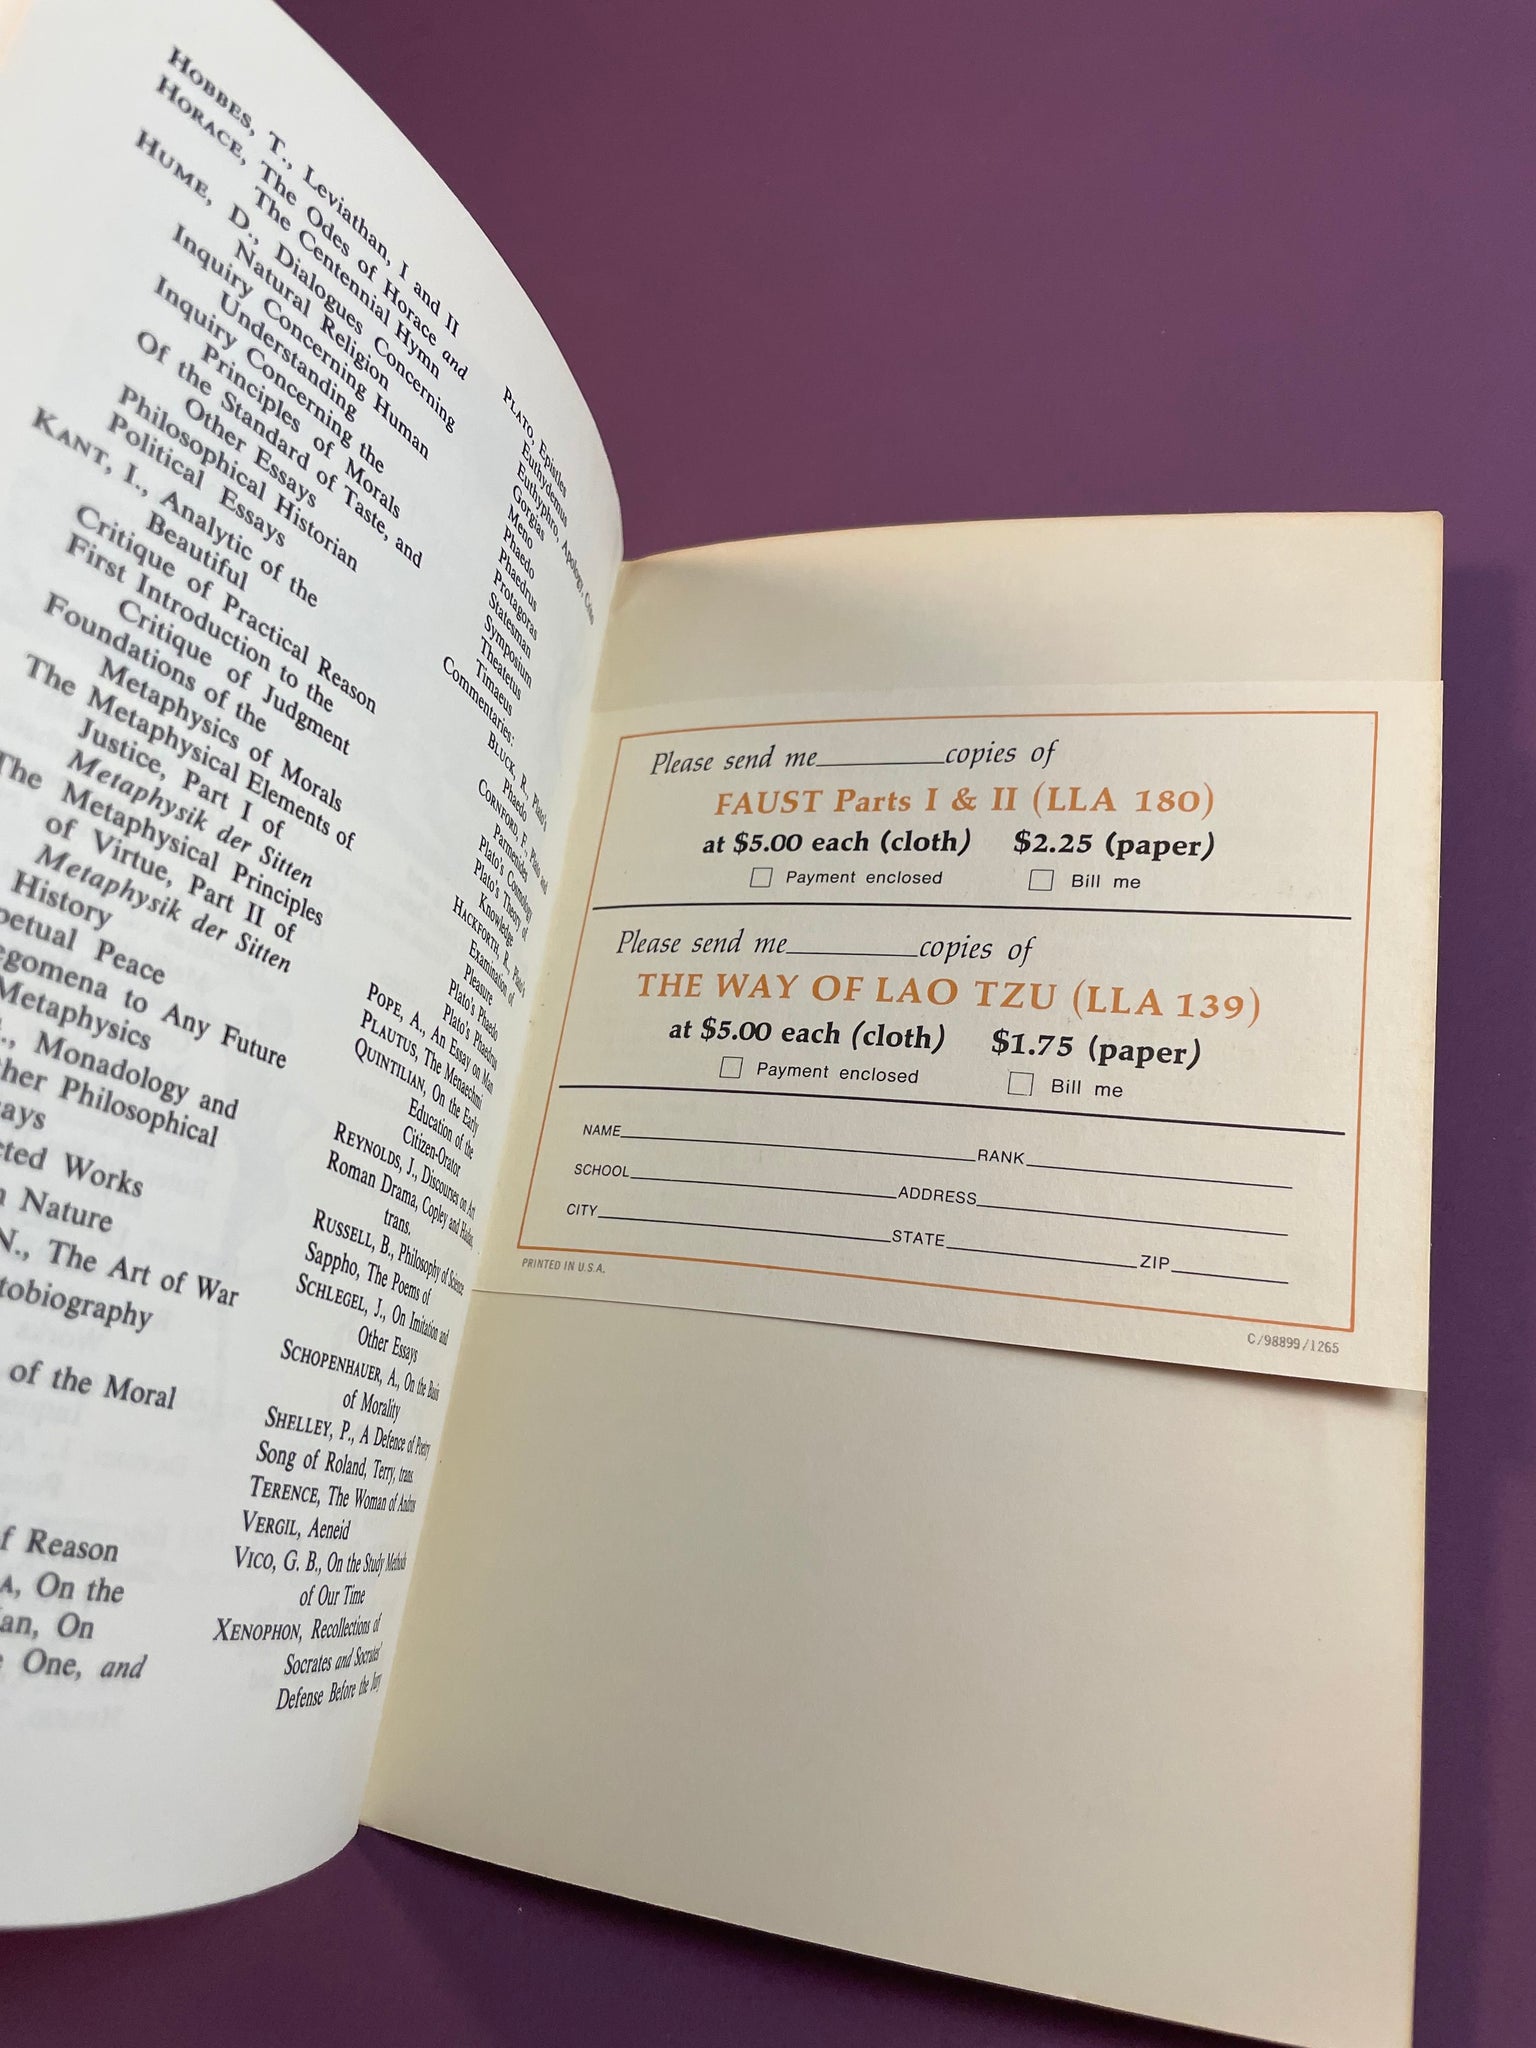 HOBBES, T., Leviathan, I and II
HORACE, The Odes of Horace and
The Centennial Hymn
HUME, D., Dialogues Concerning
Natural Religion
Inquiry Concerning Human
Understanding
Inquiry Concerning the
Principles of Morals
Of the Standard of Taste, and
Other Essays
Philosophical Historian
Political Essays
KANT, I., Analytic of the
Beautiful
Critique of Practical Reason
First Introduction to the
Critique of Judgment
Foundations of the
Metaphysics of Morals
The Metaphysical Elements of
Justice, Part I of
Metaphysik der Sitten
The Metaphysical Principles
of Virtue, Part II of
Metaphysik der Sitten
History
Peace
to Any Future
Metaphysics
Monadology and
Philosophical
Works
Nature
N., The Art of War
of the Moral
Reason
On the
On
One, and
PLATO, Epistles
Euthydemus
Euthyphro, Apology, Crito
Gorgias
Meno
Phaedo
Phaedrus
Protagoras
Statesman
Symposium
Theatetus
Timaeus
Commentaries:
BLUCK, R., Plato's
Phaedo
CORNFORD, F., Plato and
Parmenides
Plato's Cosmology
Plato's Theory of
Knowledge
HACKFORTH, R., Plato's
Examination of
Pleasure
Plato's Phaedo
Plato's Phaedrus
POPE, A., An Essay on Man
PLAUTUS, The Menaechmi
QUINTILIAN, On the Early
Education of the
Citizen-Orator
REYNOLDS, J., Discourses on Art
Roman Drama, Copley and Hadas,
trans.
RUSSELL, B., Philosophy of Science
Sappho, The Poems of
SCHLEGEL, J., On Imitation and
Other Essays
SCHOPENHAUER, A., On the Basis
of Morality
SHELLEY, P., A Defence of Poetry
Song of Roland, Terry, trans.
TERENCE, The Woman of Andros
VERGIL, Aeneid
VICO, G. B., On the Study Methods
of Our Time
XENOPHON, Recollections of
Socrates and Socrates'
Defense Before the Jury
Please send me copies of
FAUST Parts I & II (LLA 180)
at $5.00 each (cloth) $2.25 (paper)
Payment enclosed Bill me
Please send me copies of
THE WAY OF LAO TZU (LLA 139)
at $5.00 each (cloth) $1.75 (paper)
Payment enclosed Bill me
NAME RANK
SCHOOL ADDRESS
CITY STATE ZIP
PRINTED IN U.S.A.
C/98899/1265